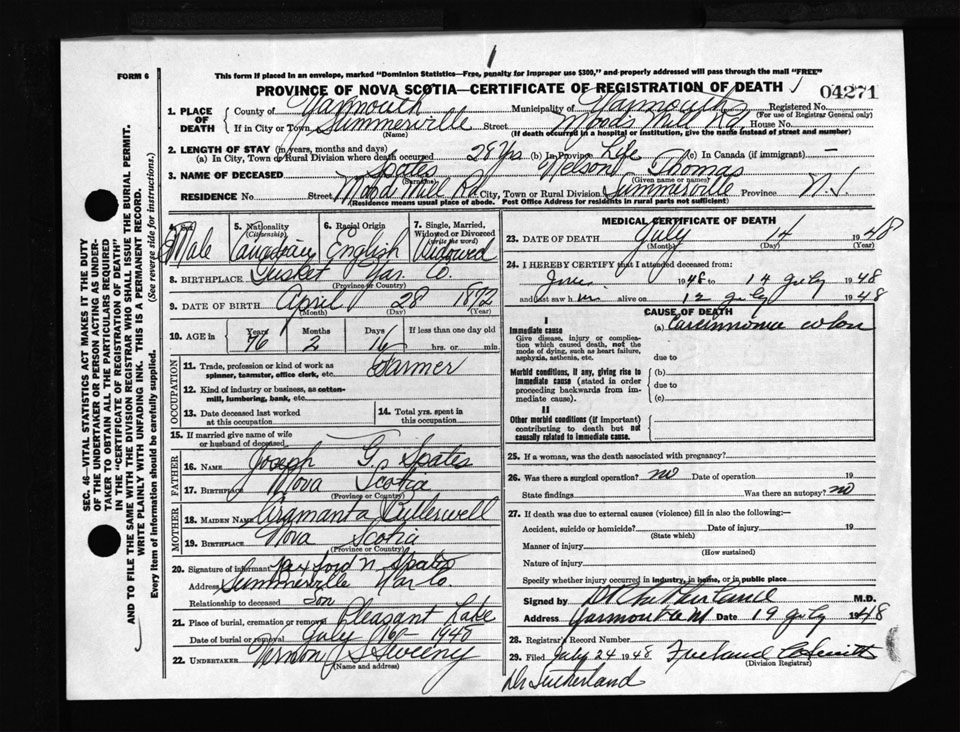 1
FORM 6
This form if placed in an envelope, marked "Dominion Statistics—Free, penalty for improper use $300," and properly addressed will pass through the mail "FREE"
PROVINCE OF NOVA SCOTIA—CERTIFICATE OF REGISTRATION OF DEATH
04271
1. PLACE OF DEATH County of Yarmouth Municipality of Yarmouth Registered No.
(For use of Registrar General only)
If in City or Town Summerville Street Moods Mill Rd House No.
(If death occurred in a hospital or institution, give the name instead of street and number)
2. LENGTH OF STAY (in years, months and days)
(a) In City, Town or Rural Division where death occurred 28 Yrs (b) In Province Life (c) In Canada (if immigrant) —
3. NAME OF DECEASED Spates Nelson Thomas
(Surname) (Given name or names)
RESIDENCE No Street Moods Mill Rd City, Town or Rural Division Summerville Province N.S.
(Residence means usual place of abode. Post Office Address for residents in rural parts not sufficient)
4. Sex Male
5. Nationality (Citizenship) Canadian
6. Racial Origin English
7. Single, Married, Widowed or Divorced (write the word) Widowed
8. BIRTHPLACE Tusket Yar. Co.
(Province or Country)
9. DATE OF BIRTH April 28 1872
(Month) (Day) (Year)
10. AGE in Years 76 Months 2 Days 16 If less than one day old hrs. or min.
OCCUPATION
11. Trade, profession or kind of work as spinner, teamster, office clerk, etc. Farmer
12. Kind of industry or business, as cotton-mill, lumbering, bank, etc.
13. Date deceased last worked at this occupation
14. Total yrs. spent in this occupation
15. If married give name of wife or husband of deceased
FATHER
16. NAME Joseph G. Spates
17. BIRTHPLACE Nova Scotia
(Province or Country)
MOTHER
18. MAIDEN NAME
19. BIRTHPLACE Nova Scotia
(Province or Country)
20. Signature of informant N. Spates
Address Summerville Yar Co.
Relationship to deceased Son
21. Place of burial, cremation or removal Pleasant Lake
Date of burial or removal July 16 1948
22. UNDERTAKER Vernon J Sweeny
(Name and address)
MEDICAL CERTIFICATE OF DEATH
23. DATE OF DEATH July 14 1948
(Month) (Day) (Year)
24. I HEREBY CERTIFY that I attended deceased from:
June 1948 to 14 July 1948
and last saw him alive on 12 July 1948
CAUSE OF DEATH
I
Immediate cause (a) Carcinoma colon
Give disease, injury or complication which caused death, not the mode of dying, such as heart failure, asphyxia, asthenia, etc. due to
Morbid conditions, if any, giving rise to immediate cause (stated in order proceeding backwards from immediate cause). (b)
due to
(c)
II
Other morbid conditions (if important) contributing to death but not causally related to immediate cause.
25. If a woman, was the death associated with pregnancy?
26. Was there a surgical operation? no Date of operation 19
State findings Was there an autopsy? no
27. If death was due to external causes (violence) fill in also the following—
Accident, suicide or homicide? Date of injury 19
(State which)
Manner of injury
(How sustained)
Nature of injury
Specify whether injury occurred in industry, in home, or in public place
Signed by M.D.
Address Yarmouth Date 19 July 1948
28. Registrar's Record Number
29. Filed July 24 1948
(Division Registrar)
Dr Sutherland
SEC. 46—VITAL STATISTICS ACT MAKES IT THE DUTY
OF THE UNDERTAKER OR PERSON ACTING AS UNDER-
TAKER TO OBTAIN ALL THE PARTICULARS REQUIRED
IN THE "CERTIFICATE OF REGISTRATION OF DEATH"
AND TO FILE THE SAME WITH THE DIVISION REGISTRAR WHO SHALL ISSUE THE BURIAL PERMIT.
WRITE PLAINLY WITH UNFADING INK. THIS IS A PERMANENT RECORD.
Every item of information should be carefully supplied. (See reverse side for instructions.)